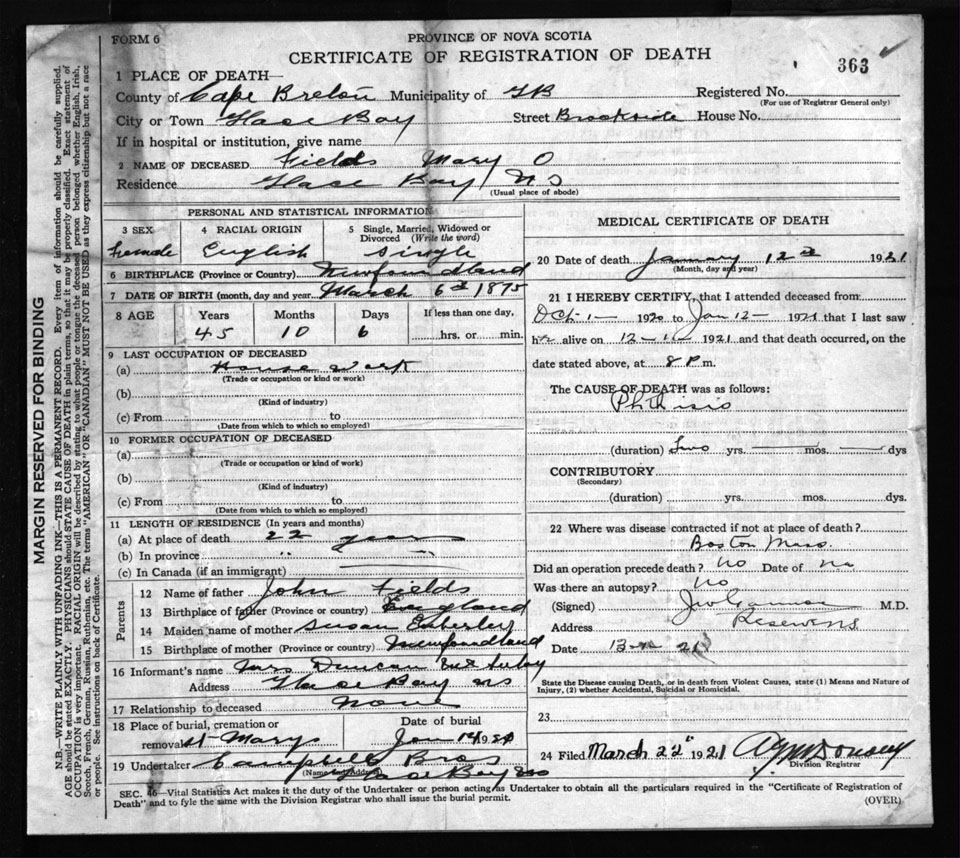 FORM 6
PROVINCE OF NOVA SCOTIA
CERTIFICATE OF REGISTRATION OF DEATH
363
1 PLACE OF DEATH—
County of Cape Breton Municipality of GB Registered No.
(For use of Registrar General only)
City or Town Glace Bay Street Brookside House No.
If in hospital or institution, give name
2 NAME OF DECEASED Fields Mary O
Residence Glace Bay NS
(Usual place of abode)
PERSONAL AND STATISTICAL INFORMATION
3 SEX 4 RACIAL ORIGIN 5 Single, Married, Widowed or Divorced (Write the word)
female English Single
6 BIRTHPLACE (Province or Country) Newfoundland
7 DATE OF BIRTH (month, day and year) March 6 1875
8 AGE Years Months Days If less than one day,
45 10 6 hrs. or min.
9 LAST OCCUPATION OF DECEASED
(a) House Work
(Trade or occupation or kind or work)
(b)
(Kind of industry)
(c) From to
(Date from which to which so employed)
10 FORMER OCCUPATION OF DECEASED
(a)
(Trade or occupation or kind of work)
(b)
(Kind of industry)
(c) From to
(Date from which to which so employed)
11 LENGTH OF RESIDENCE (In years and months)
(a) At place of death 22 years
(b) In province " —
(c) In Canada (if an immigrant)
Parents
12 Name of father John Fields
13 Birthplace of father (Province or country) England
14 Maiden name of mother Susan
15 Birthplace of mother (Province or country) Newfoundland
16 Informant's name Mrs Duncan
Address Glace Bay NS
17 Relationship to deceased None
18 Place of burial, cremation or removal St Marys Date of burial Jan
19 Undertaker Campbell Bros
(Name and Address) Glace Bay NS
MEDICAL CERTIFICATE OF DEATH
20 Date of death January 12 1921
(Month, day and year)
21 I HEREBY CERTIFY, that I attended deceased from
Oct 1— 1920 to Jan 12— 1921 that I last saw
her alive on 12—1— 1921 and that death occurred, on the
date stated above, at 8 P m.
The CAUSE OF DEATH was as follows:
Phthisis
(duration) Two yrs. — mos. — dys
CONTRIBUTORY
(Secondary)
(duration) yrs. mos. dys.
22 Where was disease contracted if not at place of death?
Boston Mass.
Did an operation precede death? No Date of no
Was there an autopsy? No
(Signed) M.D.
Address Reserve NS
Date
State the Disease causing Death, or in death from Violent Causes, state (1) Means and Nature of Injury, (2) whether Accidental, Suicidal or Homicidal.
23
24 Filed March 22" 1921
Division Registrar
SEC. 46—Vital Statistics Act makes it the duty of the Undertaker or person acting as Undertaker to obtain all the particulars required in the "Certificate of Registration of
Death" and to fyle the same with the Division Registrar who shall issue the burial permit. (OVER)
MARGIN RESERVED FOR BINDING
N.B.—WRITE PLAINLY WITH UNFADING INK—THIS IS A PERMANENT RECORD. Every item of information should be carefully supplied.
AGE should be stated EXACTLY. PHYSICIANS should STATE CAUSE OF DEATH in plain terms, so that it may be properly classified. Exact statement of
OCCUPATION is very important. RACIAL ORIGIN will be described by stating to what people or tongue the deceased person belonged whether English, Irish,
Scotch, French, German, Russian, Ruthenian, etc. The terms "AMERICAN" OR "CANADIAN" MUST NOT BE USED as they express citizenship but not a race
or people. See instructions on back of Certificate.